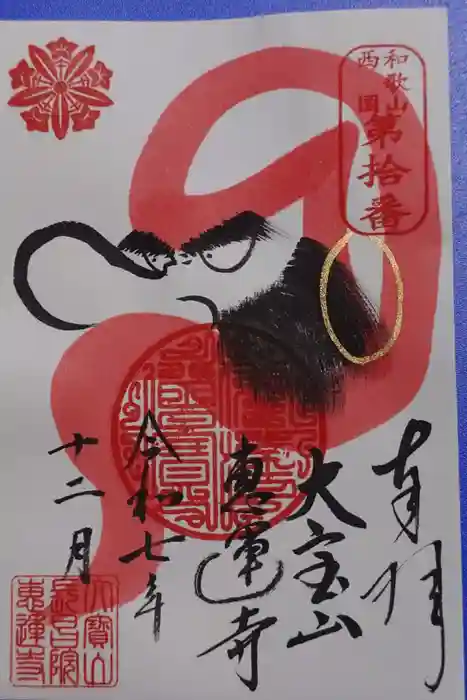 和歌山
西国
第拾番
奉拝
大宝山
恵運寺
令和七年
十二月
大寶山
恵運寺